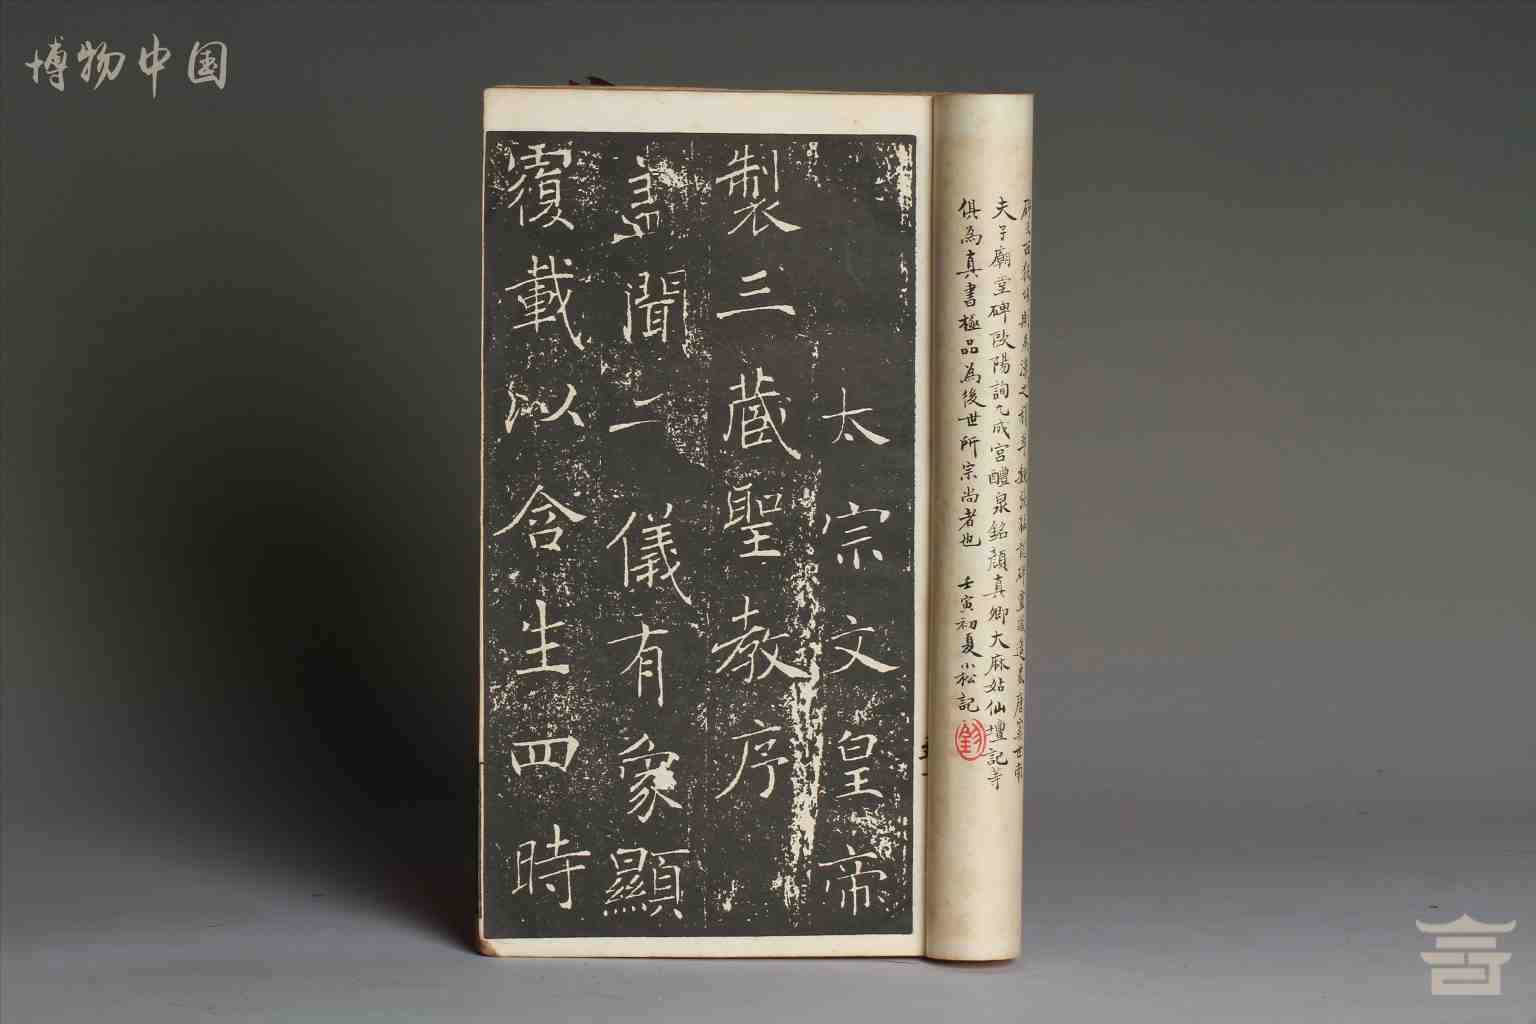 博物中国
夫子廟堂碑歐陽詢九成宮醴泉銘顏真卿大麻姑仙壇記等
俱為真書極品為後世所宗尚者也 壬寅初夏小松記
太宗文皇帝
製三藏聖教序
盖聞二儀有象顯
覆載以含生四時